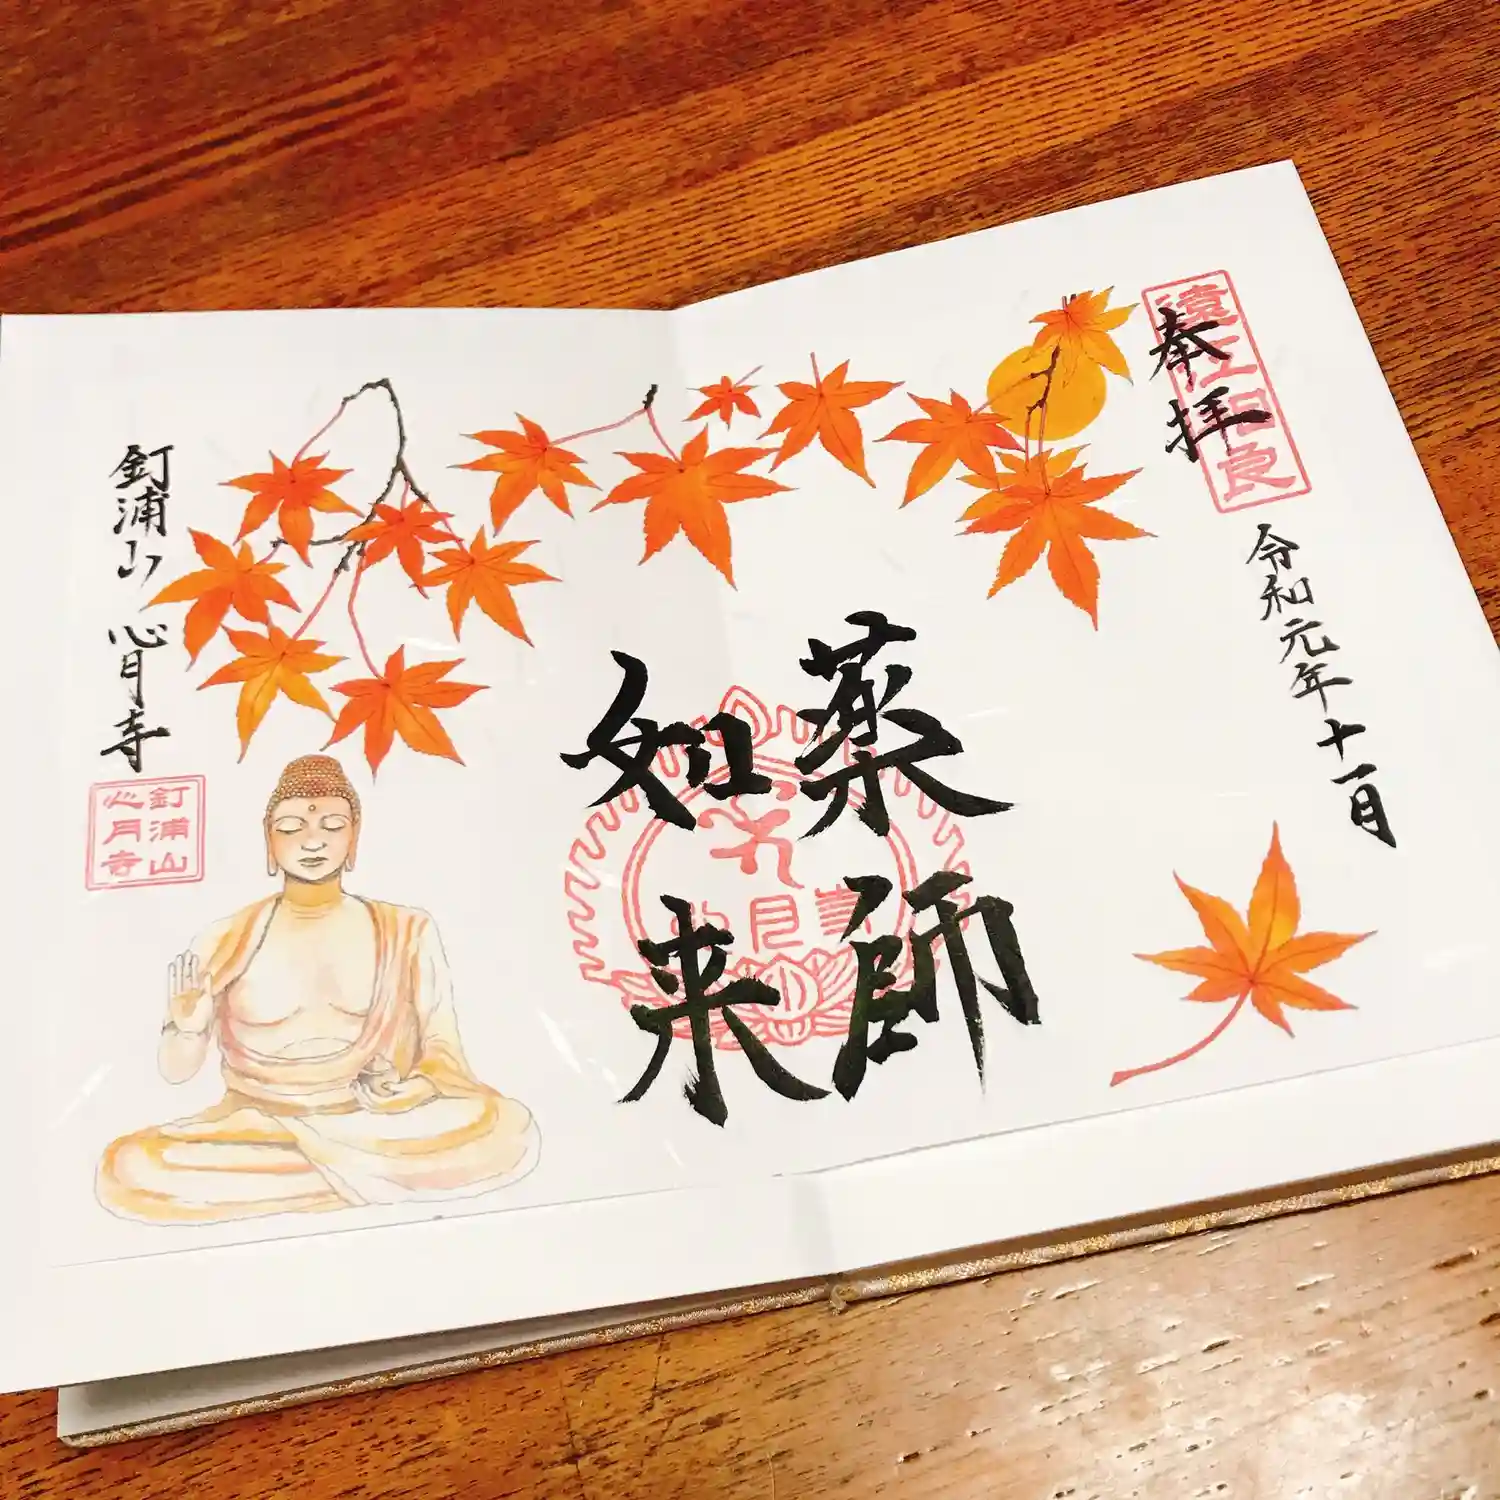 奉拝
遠江相良
令和元年十一月
薬師
如来
釘浦山 心月寺
釘浦山
心月寺